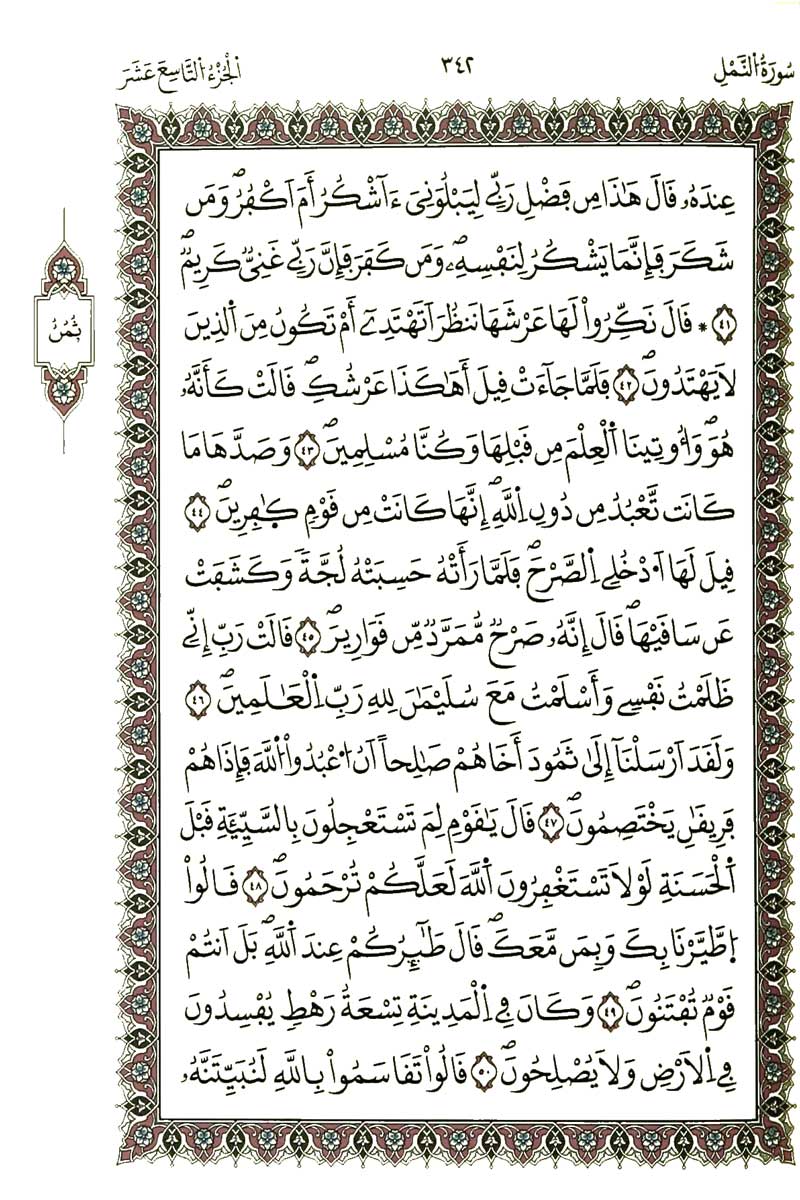 سُورَةُ النَّمْلِ
٣٤٢
الْجُزْءُ التَّاسِعَ عَشَرَ
عِندَهُۥ قَالَ هَٰذَا مِن فَضْلِ رَبِّے لِيَبْلُوَنِىَ ءَآشْكُرُ أَمَ اَكْفُرُۖ وَمَن
شَكَرَ فَإِنَّمَا يَشْكُرُ لِنَفْسِهِۦۖ وَمَن كَفَرَ فَإِنَّ رَبِّے غَنِىٌّ كَرِيمٌۖ
٤١ * قَالَ نَكِّرُواْ لَهَا عَرْشَهَا نَنظُرَ اَتَهْتَدِےٓ أَمْ تَكُونُ مِنَ اَلذِينَ
لَا يَهْتَدُونَۖ ٤٢ فَلَمَّا جَآءَتْ قِيلَ أَهَٰكَذَا عَرْشُكِۖ قَالَتْ كَأَنَّهُۥ
هُوَۖ وَأُوتِينَا اَلْعِلْمَ مِن قَبْلِهَا وَكُنَّا مُسْلِمِينَۖ ٤٣ وَصَدَّهَا مَا
كَانَت تَّعْبُدُ مِن دُونِ اِللَّهِۖ إِنَّهَا كَانَتْ مِن قَوْمٖ كٰفِرِينَۖ ٤٤
قِيلَ لَهَا اَ۟دْخُلِے اِلصَّرْحَۖ فَلَمَّا رَأَتْهُ حَسِبَتْهُ لُجَّةٗ وَكَشَفَتْ
عَن سَاقَيْهَاۖ قَالَ إِنَّهُۥ صَرْحٌ مُّمَرَّدٌ مِّن قَوَارِيرَۖ ٤٥ قَالَتْ رَبِّ إِنِّے
ظَلَمْتُ نَفْسِے وَأَسْلَمْتُ مَعَ سُلَيْمَٰنَ لِلهِ رَبِّ اِلْعَٰلَمِينَۖ ٤٦
وَلَقَدَ اَرْسَلْنَآ إِلَىٰ ثَمُودَ أَخَاهُمْ صَٰلِحاً اَنُ اُ۟عْبُدُواْ اُللَّهَ فَإِذَا هُمْ
فَرِيقَٰنِ يَخْتَصِمُونَۖ ٤٧ قَالَ يَٰقَوْمِ لِمَ تَسْتَعْجِلُونَ بِالسَّيِّئَةِ قَبْلَ
اَلْحَسَنَةِ لَوْلَا تَسْتَغْفِرُونَ اَللَّهَ لَعَلَّكُمْ تُرْحَمُونَۖ ٤٨ قَالُواْ
اُ۪طَّيَّرْنَا بِكَ وَبِمَن مَّعَكَۖ قَالَ طَٰٓئِرُكُمْ عِندَ اَللَّهِۖ بَلَ اَنتُمْ
قَوْمٌ تُفْتَنُونَۖ ٤٩ وَكَانَ فِے اِلْمَدِينَةِ تِسْعَةُ رَهْطٖ يُفْسِدُونَ
فِے اِلْأَرْضِ وَلَا يُصْلِحُونَۖ ٥٠ قَالُواْ تَقَاسَمُواْ بِاللَّهِ لَنُبَيِّتَنَّهُۥ
ثُمُنُ